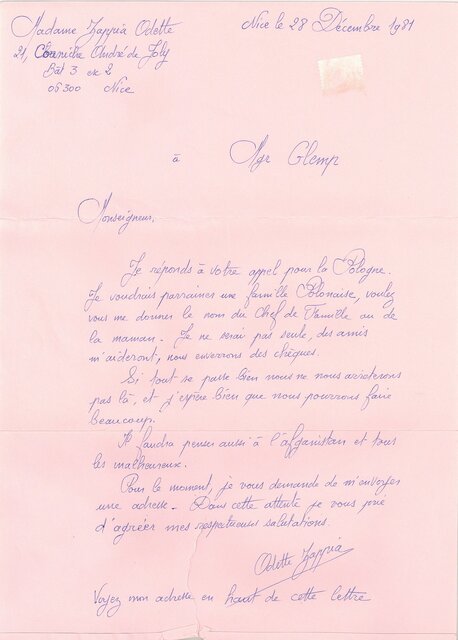 Madame Zappia Odette
Nice le 28 Décembre 1981
21, Corniche André de Joly
Bât 3 esc 2
06300 Nice
à Mgr Glemp
Monseigneur,
Je réponds à votre appel pour la Pologne.
Je voudrais parrainer une famille Polonaise, voulez
vous me donner le nom du Chef de Famille ou de
la maman. Je ne serai pas seule, des amis
m'aideront, nous enverrons des chèques.
Si tout se passe bien nous ne nous arrêterons
pas là, et j'espère bien que nous pourrons faire
beaucoup.
Il faudra penser aussi à l'afganistan et tous
les malheureux.
Pour le moment, je vous demande de m'envoyer
une adresse. Dans cette attente je vous prie
d'agréer mes respectueuses salutations.
Odette Zappia
Voyez mon adresse en haut de cette lettre